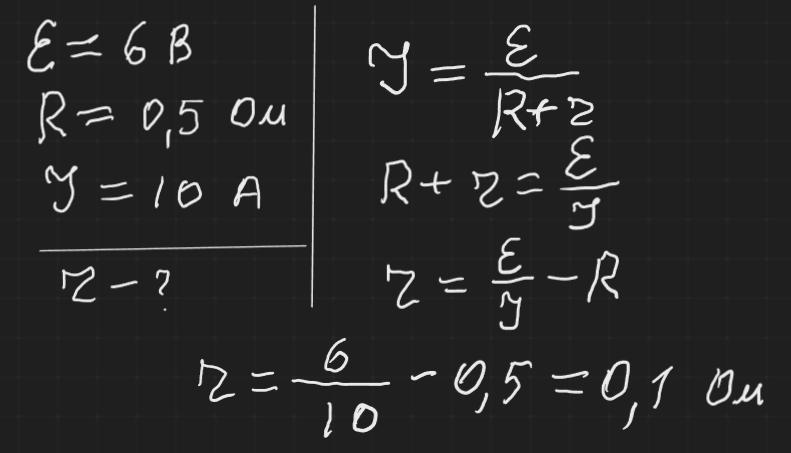 ℰ = 6 В
R = 0,5 Ом
I = 10 А
r - ?
I = ℰ / (R + r)
R + r = ℰ / I
r = ℰ / I - R
r = 6 / 10 - 0,5 = 0,1 Ом